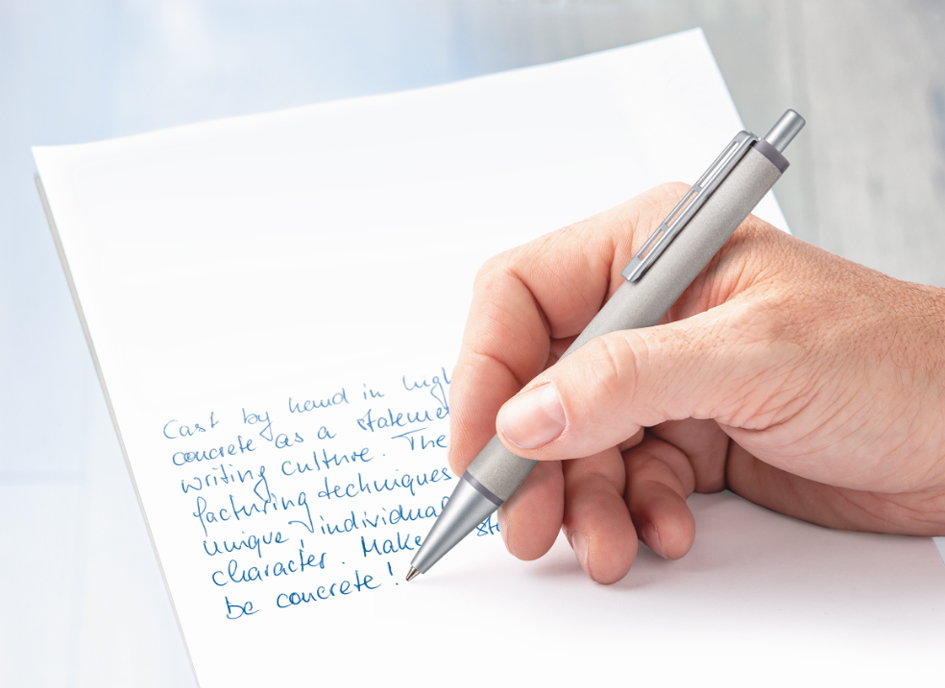 Cast by hand in high
concrete as a stateme
writing culture. The
facturing techniques
unique, individual
character. Make st
be concrete!